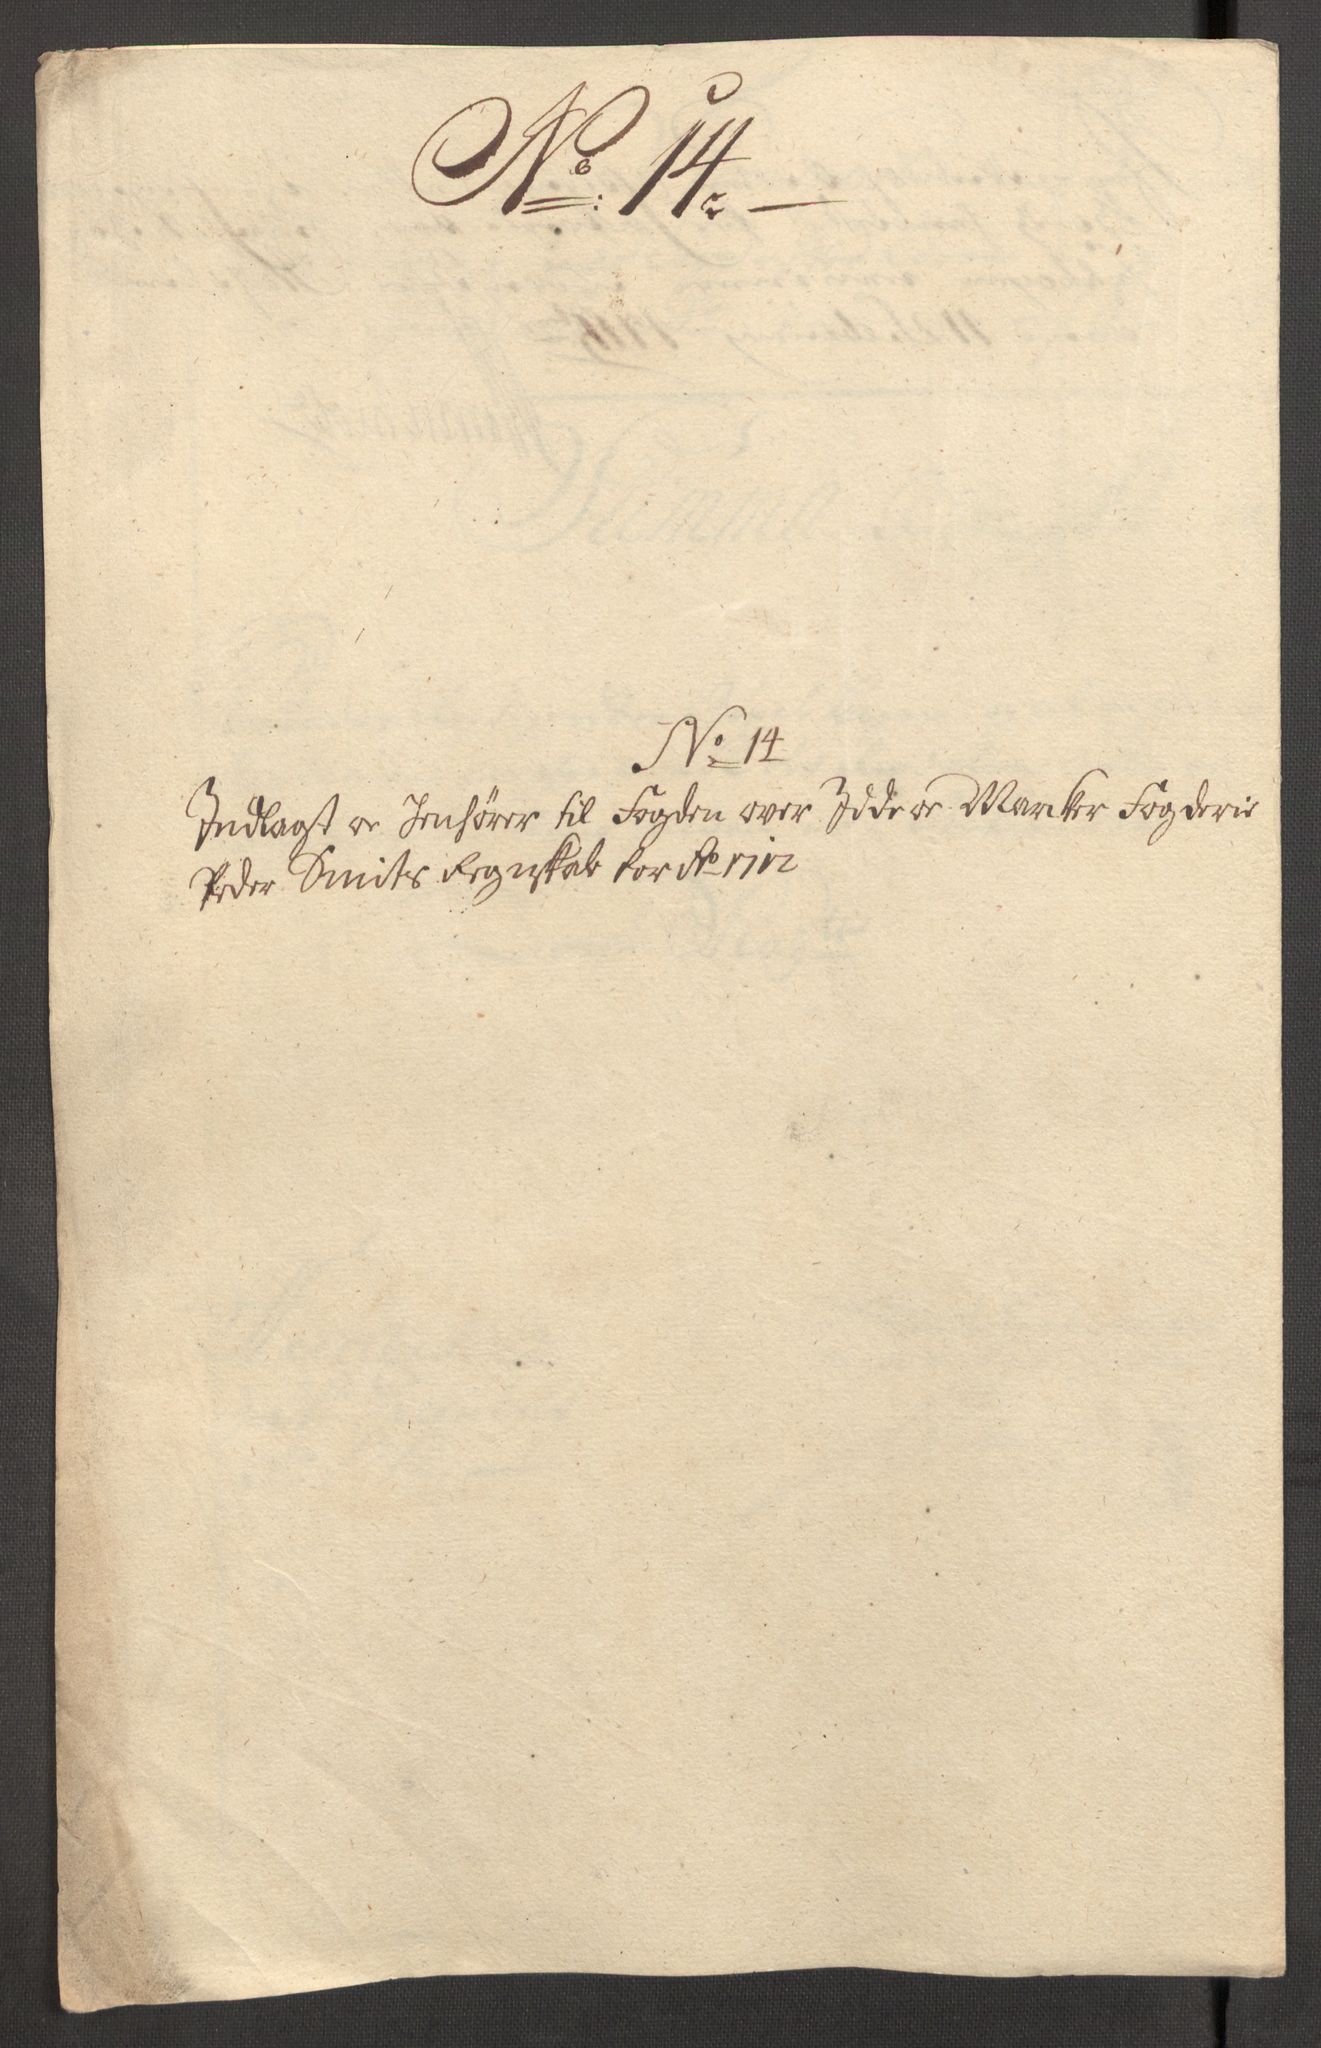 No: 14
No 14
Indlagt oc Jenhörer til Fogden over Idde oc Marker Fogderie
Peder Smits Regnskab for Ao 1712